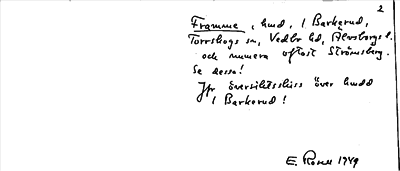 2
Framme, hmd, i Barkerud,
Torrskogs sn, Vedbo hd, Älvsborgs l.
och numera oftast Strömsberg.
Se dessa!
Jfr översiktsskiss över hmdd
i Barkerud!
E. Rosell 1949